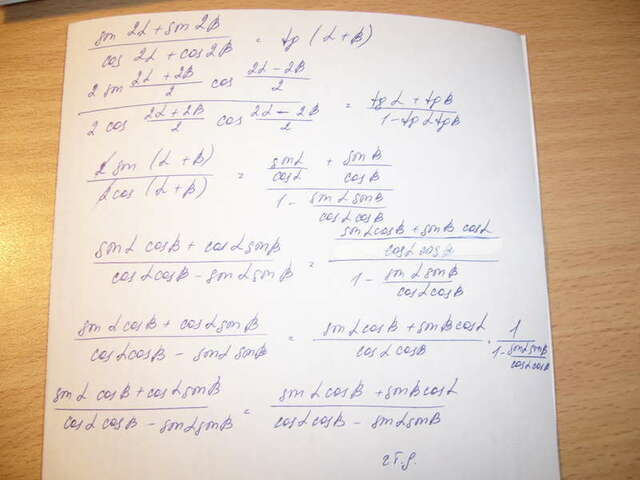 (sin 2α + sin 2β) / (cos 2α + cos 2β) = tg (α + β)
(2 sin (2α + 2β)/2 cos (2α - 2β)/2) / (2 cos (2α + 2β)/2 cos (2α - 2β)/2) = (tg α + tg β) / (1 - tg α tg β)
(2 sin (α + β)) / (2 cos (α + β)) = (sin α / cos α + sin β / cos β) / (1 - (sin α sin β) / (cos α cos β))
(sin α cos β + cos α sin β) / (cos α cos β - sin α sin β) = ((sin α cos β + sin β cos α) / (cos α cos β)) / (1 - (sin α sin β) / (cos α cos β))
(sin α cos β + cos α sin β) / (cos α cos β - sin α sin β) = (sin α cos β + sin β cos α) / (cos α cos β) · 1 / (1 - (sin α sin β) / (cos α cos β))
(sin α cos β + cos α sin β) / (cos α cos β - sin α sin β) = (sin α cos β + sin β cos α) / (cos α cos β - sin α sin β)
ч.т.д.